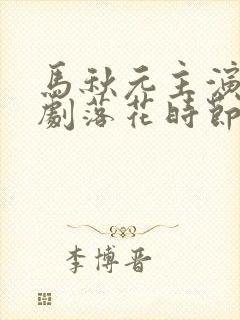 馬秋元主演
劇落花時節
李博晋